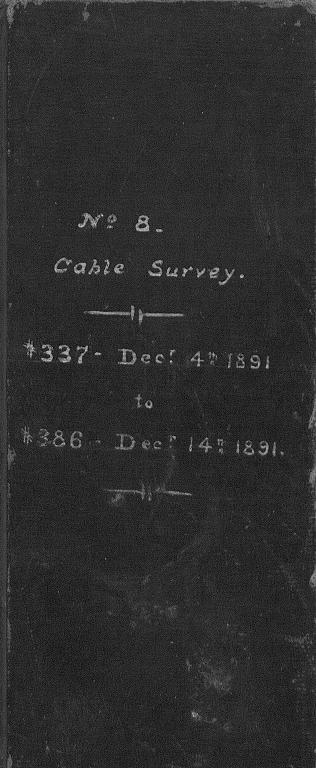 Nº 8.
Cable Survey.
#337- Decr 4th 1891
to
#386- Decr 14th 1891.